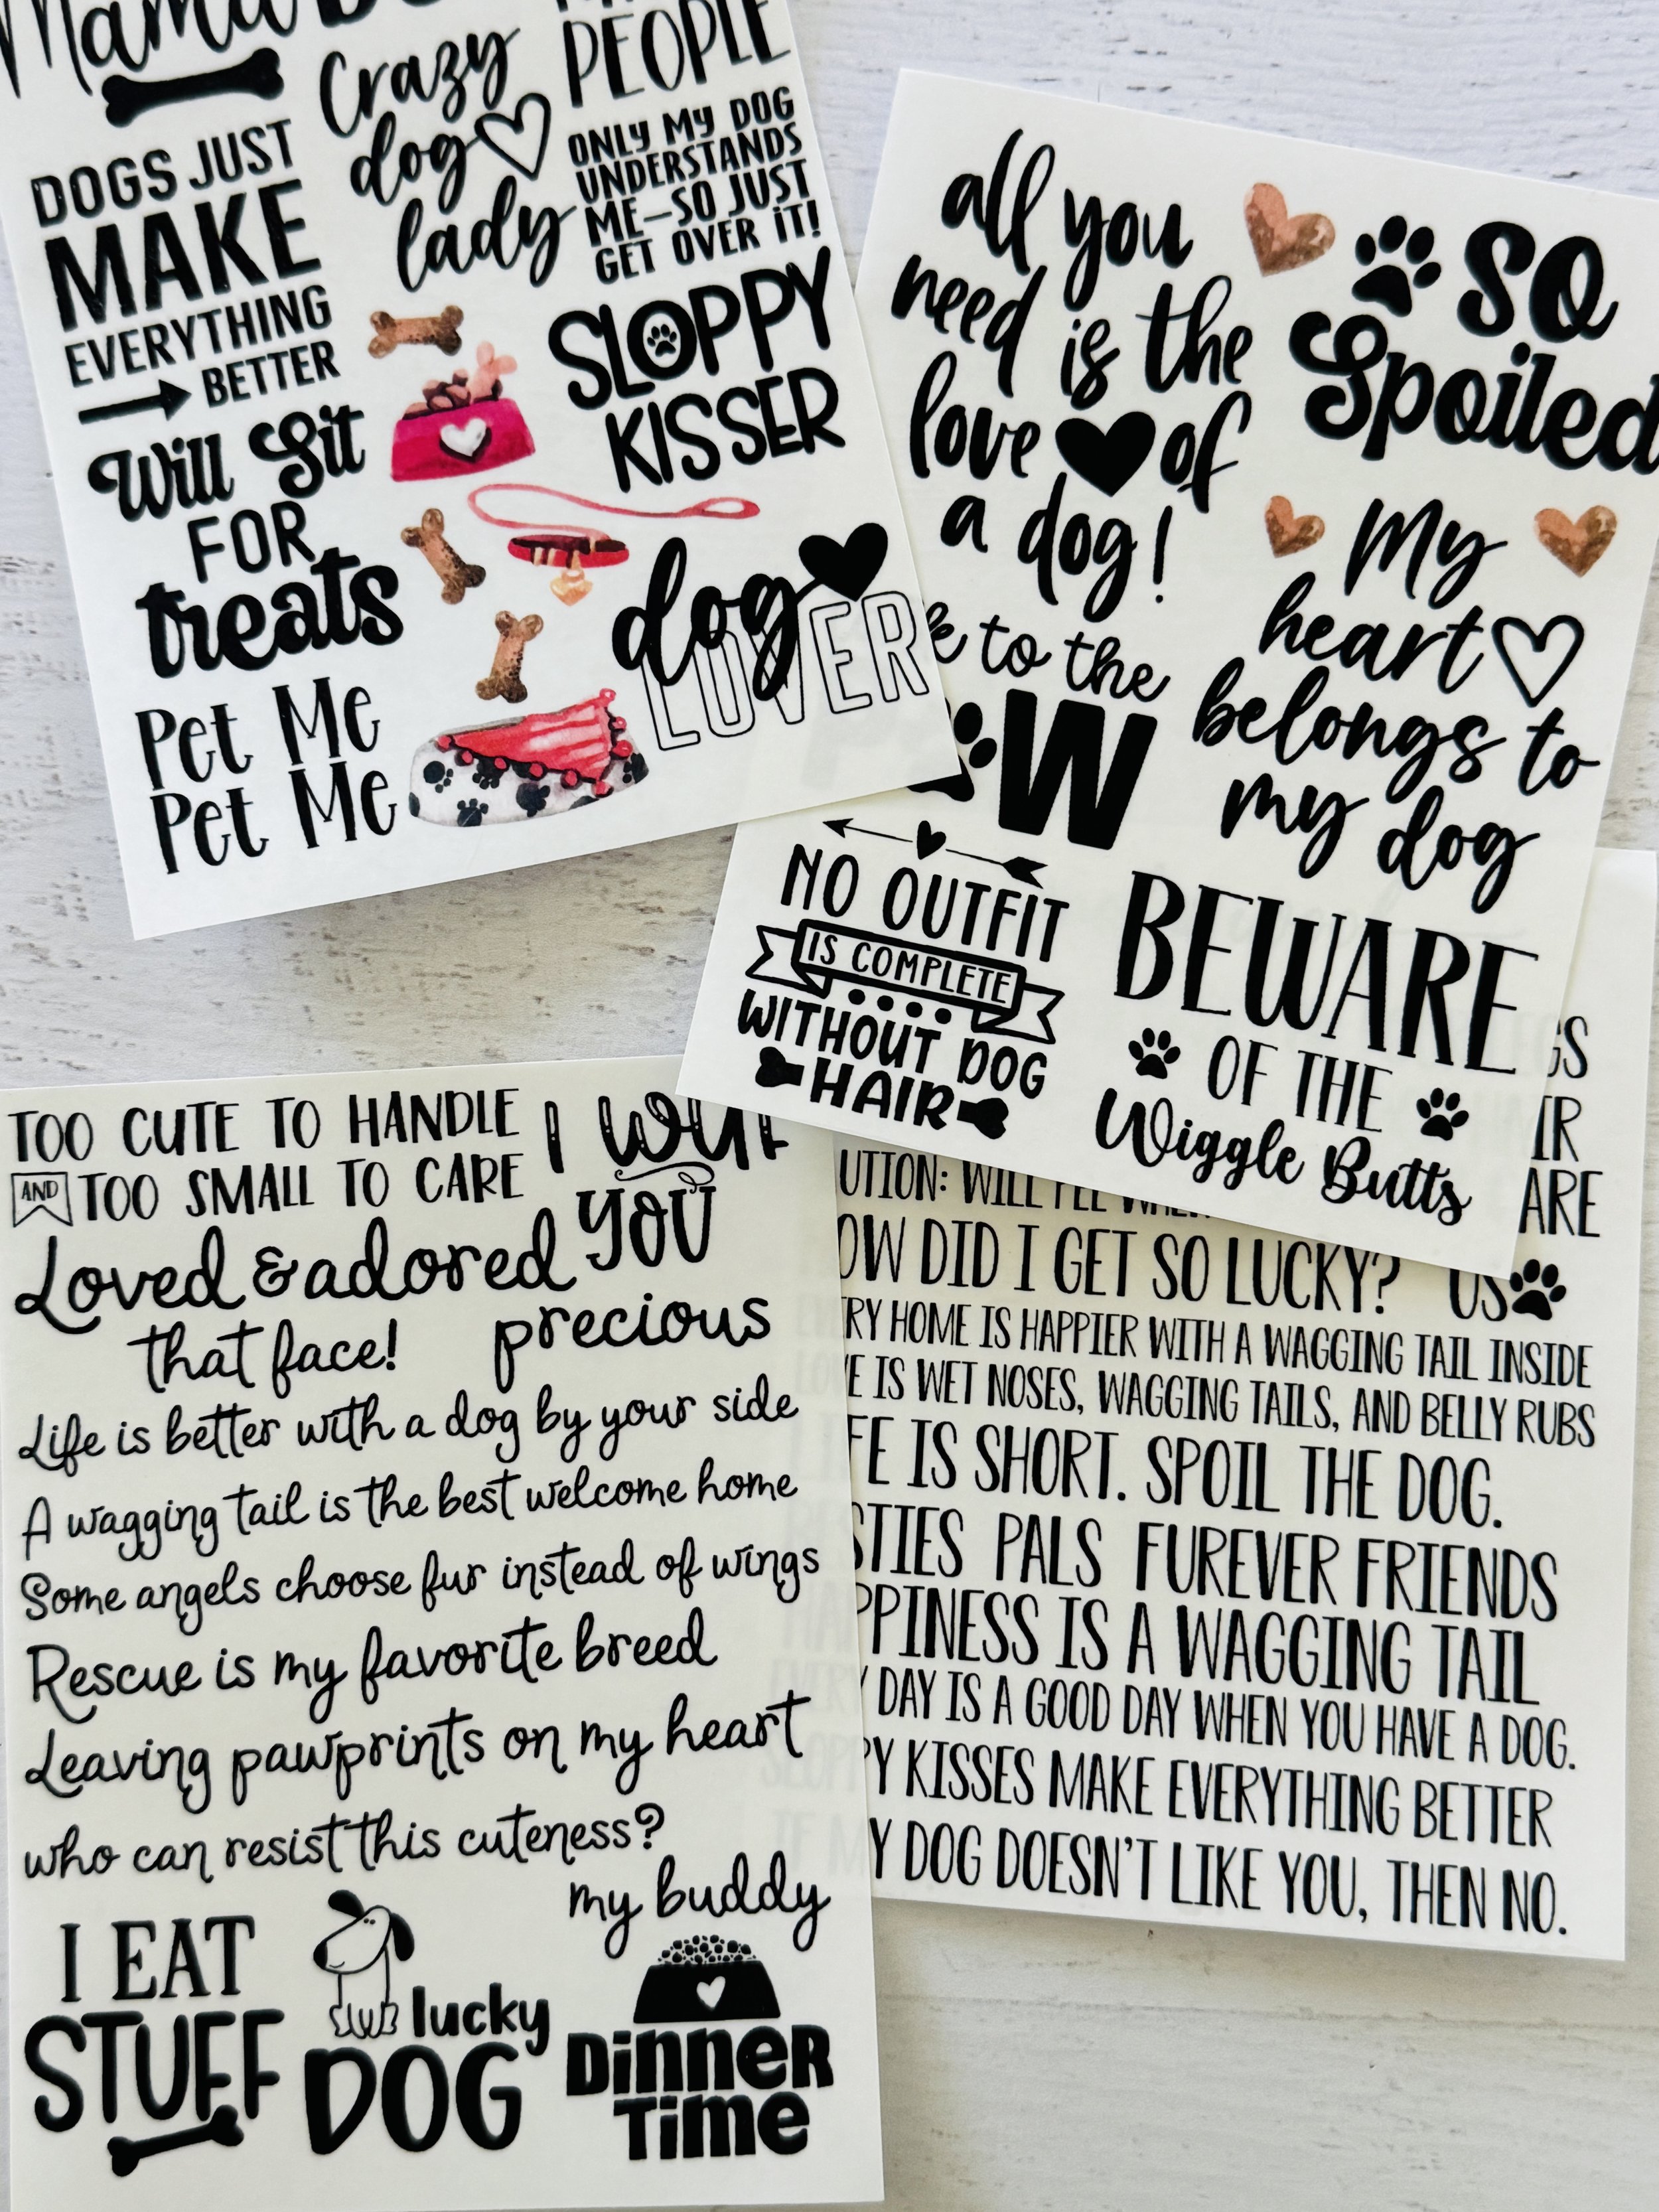 Mama
Crazy
dog
lady
PEOPLE
DOGS JUST
MAKE
EVERYTHING
BETTER
ONLY MY DOG
UNDERSTANDS
ME—SO JUST
GET OVER IT!
SLOPPY
KISSER
Will Sit
FOR
treats
dog
LOVER
Pet Me
Pet Me
all you
need is the
love of
a dog!
SO
Spoiled
My
heart
belongs to
my dog
to the
W
NO OUTFIT
IS COMPLETE
WITHOUT DOG
HAIR
BEWARE
OF THE
Wiggle Butts
TOO CUTE TO HANDLE
AND TOO SMALL TO CARE
I WUF
YOU
Loved & adored
that face!
precious
Life is better with a dog by your side
A wagging tail is the best welcome home
Some angels choose fur instead of wings
Rescue is my favorite breed
Leaving pawprints on my heart
who can resist this cuteness?
my buddy
I EAT
STUFF
lucky
DOG
DINNER
TIME
GS
IR
ARE
UTION: WILL
OW DID I GET SO LUCKY?
US
RY HOME IS HAPPIER WITH A WAGGING TAIL INSIDE
E IS WET NOSES, WAGGING TAILS, AND BELLY RUBS
FE IS SHORT. SPOIL THE DOG.
STIES PALS FUREVER FRIENDS
PPINESS IS A WAGGING TAIL
Y DAY IS A GOOD DAY WHEN YOU HAVE A DOG.
PY KISSES MAKE EVERYTHING BETTER
Y DOG DOESN'T LIKE YOU, THEN NO.